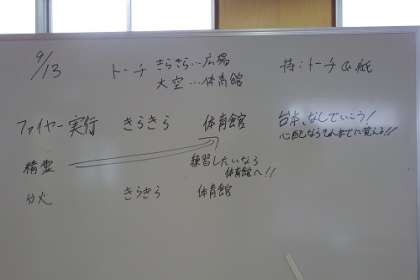 9/13
トーチ きらきら…広場
大空…体育館
持:トーチ&紙
ファイヤー実行 きらきら 体育館
台本なしでいこう!
心配ならてんませに覚える!!
精霊
練習したいなら
体育館へ!!
分火 きらきら 体育館